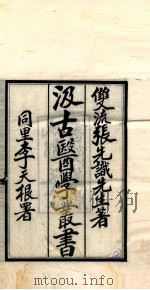 雙流張先識先生著
汲古醫學叢書
同里李天根署
www.ertongbook.com